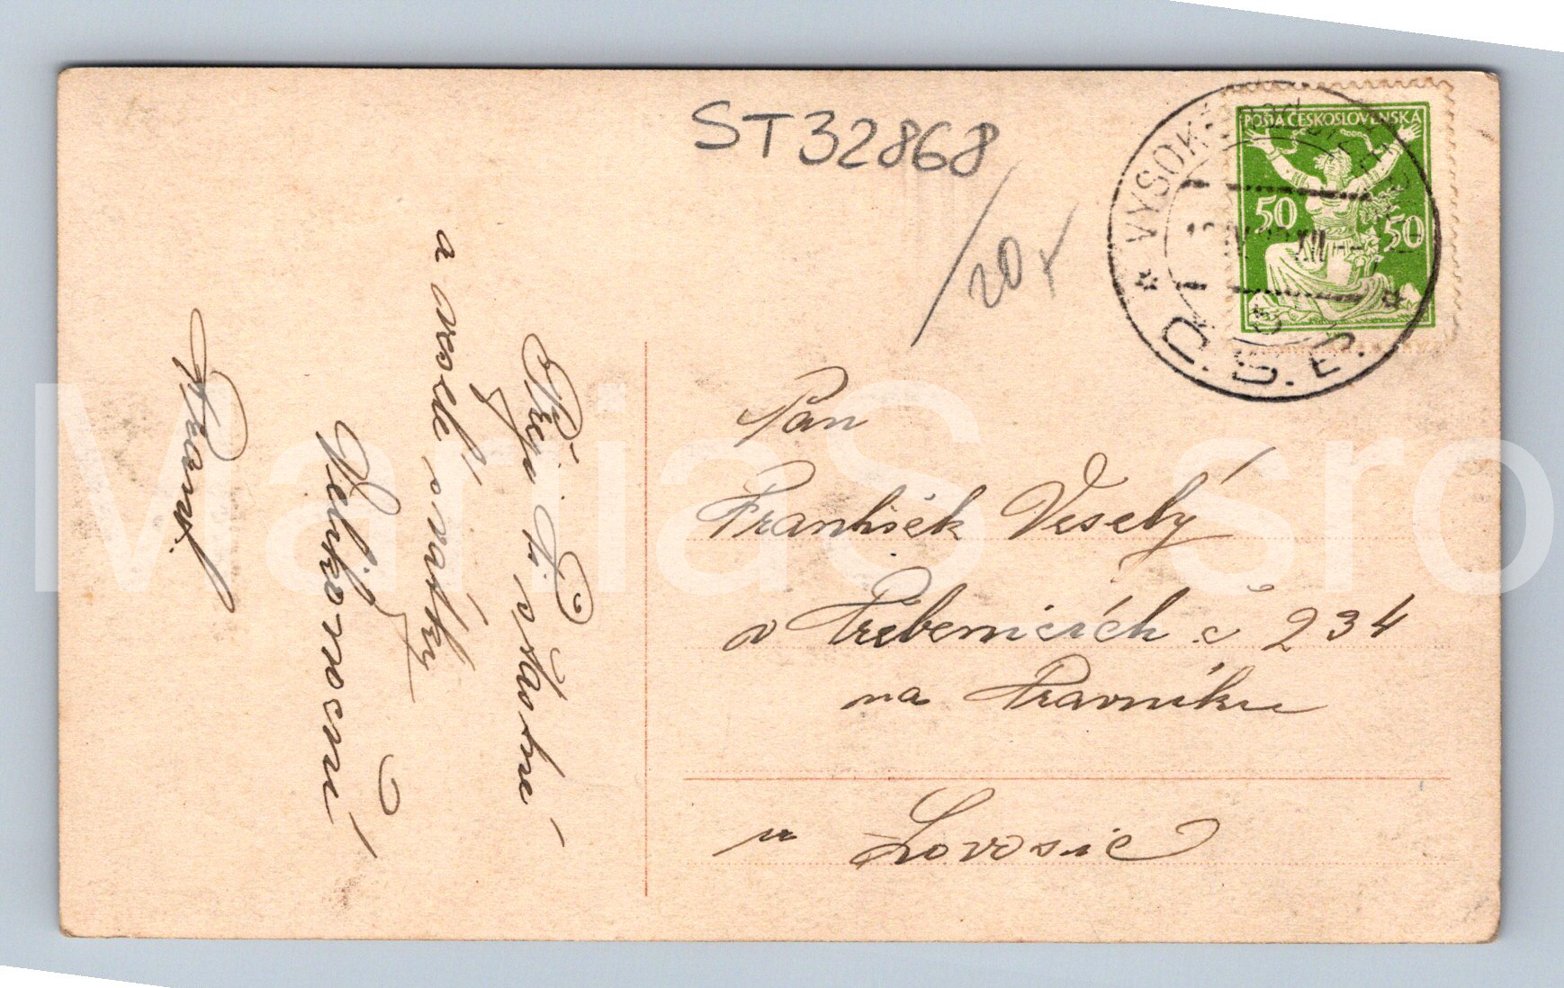 ST32868
20x
POŠTA ČESKOSLOVENSKÁ
50 50
VYSOK
Pan
František Veselý
v Třebenicích č 234
na Pravníku
u Lovosic
Přeji Ti šťastné
a veselé svátky
Velikonoční
Frant.
ManiaS sro